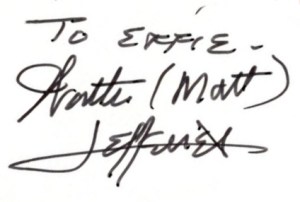 To Effie.
Walter (Matt)
Jefferies